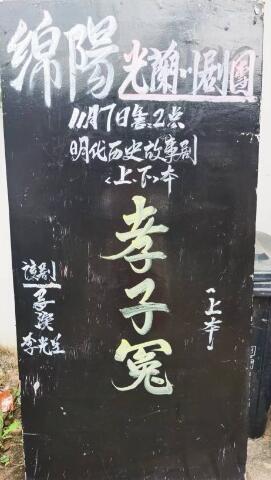 绵陽光蘭川劇團
11月7日星2点
明代历史故事剧
〈上.下〉本
孝子冤
〈上本〉
该剧
李光兰